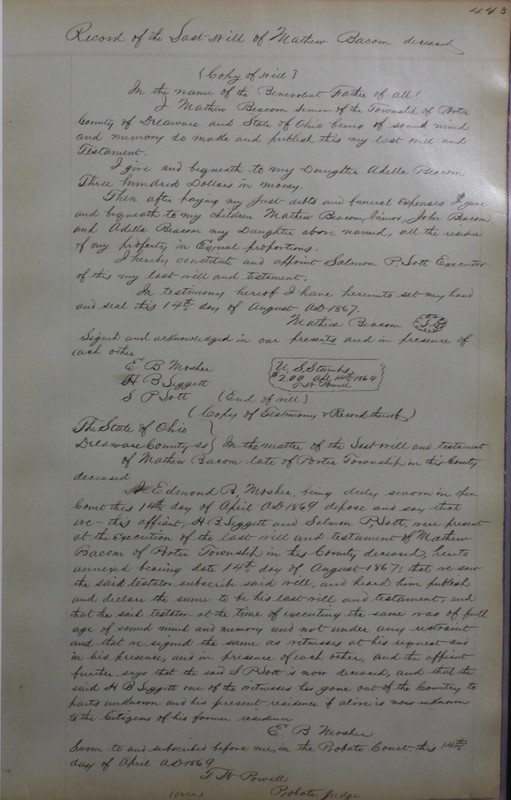 443
Record of the Last Will of Mathew Bacom deceased
{Copy of Will}
In the name of the Benevolent Father of all!
I Mathew Beacom Senior of the Township of Porter
County of Delaware and State of Ohio being of sound mind
and memory do make and publish this my last will and
Testament.
I give and bequeath to my Daughter Adella Beacom
Three hundred Dollars in money.
Then after paying my just debts and funeral expenses I give
and bequeath to my children Mathew Beacom, Minor, John Bacom
and Adella Beacom my Daughter above named, all the residue
of my property in Equal proportions.
I hereby constitute and appoint Salmon P. Sott Executor
of this my last will and testament.
In testimony hereof I have hereunto set my hand
and seal this 14th day of August AD 1867.
Mathew Beacom
Signed and acknowledged in our presents and in presence of
each other
E B Mosher
H B Leggett
S P Sott
U. S. Stamps
$2.00 Apl 14th 1869
T W Powell
(End of will)
(Copy of Testimony & Record thereof)
The State of Ohio
Delaware County ss } In the matter of the Last Will and testament
of Mathew Bacom late of Porter Township in this County
deceased
I Edmond B. Mosher, being duly sworn in open
Court this 14th day of April AD 1869 depose and say that
we - this affiant, H B Leggett and Salmon P Sott, were present
at the execution of the last will and testament of Mathew
Bacom of Porter Township in this County deceased, hereto
annexed bearing date 14th day of August 1867; that we saw
the said testator subscribe said will, and heard him publish
and declare the same to be his last will and testament, and
that the said testator at the time of executing the same was of full
age of sound mind and memory and not under any restraint
and that we signed the same as witnesses at his request and
in his presence, and in presence of each other, and the affiant
further says that the said S P Sott is now deceased, and that the
said H B Leggett one of the witnesses has gone out of the Country to
parts unknown and his present residence if alive is now unknown
to the Citizens of his former residence
E B Mosher
Sworn to and subscribed before me, in the Probate Court, this 14th
day of April AD 1869
T W Powell
(over) Probate Judge